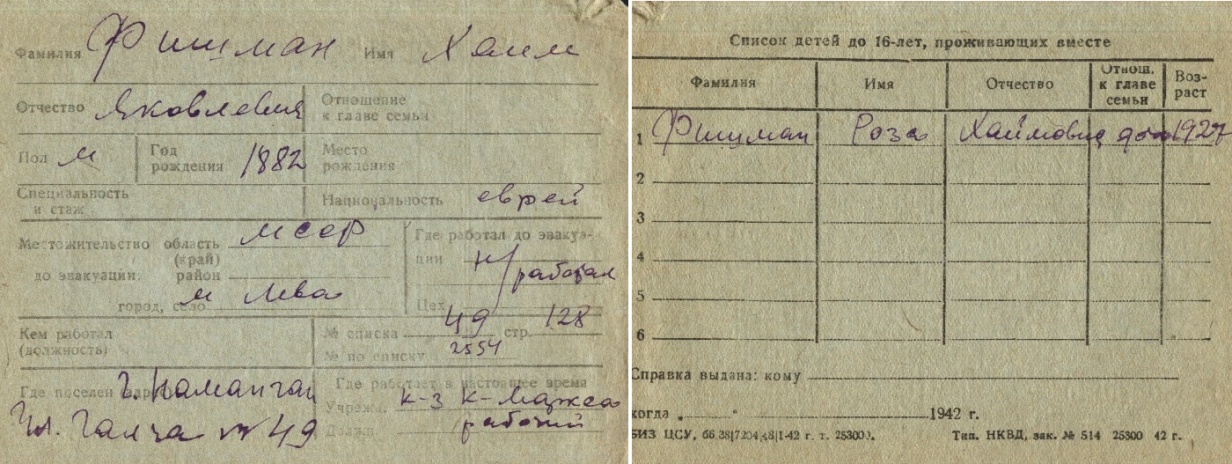 Фамилия Фишман Имя Хаим
Отчество Яковлевич Отношение к главе семьи
Пол м Год рождения 1882 Место рождения
Специальность и стаж Национальность еврей
Местожительство область мсср Где работал до эвакуа-
(край) ции н/работал
до эвакуации: район
город, село м Лева Цех
Кем работал (должность) № списка 49 стр. 128
№ по списку 2554
Где поселен (адрес) г. Наманган Где работает в настоящее время
Учрежд. к-з К-Маркса
Ул. Галча № 49 Должн. рабочий
Список детей до 16-лет, проживающих вместе
Фамилия Имя Отчество Отнош. к главе семьи Воз-раст
1 Фишман Роза Хаймовна доч 1927
2
3
4
5
6
Справка выдана: кому
когда „ " 1942 г.
БИЗ ЦСУ, 66.38|7204,48|1-42 г. т. 25300. Тип. НКВД, зак. № 514 25300 42 г.